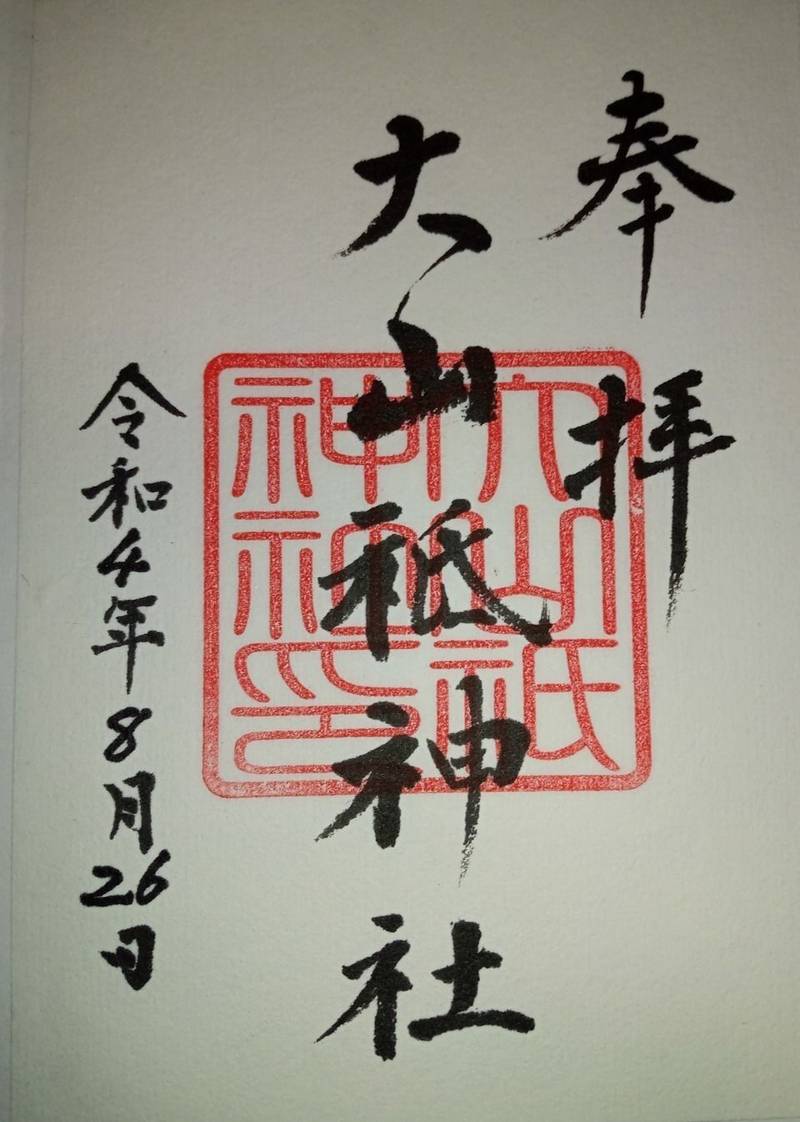 奉拝
大山祇神社
令和4年8月26日
大山祇
神社印